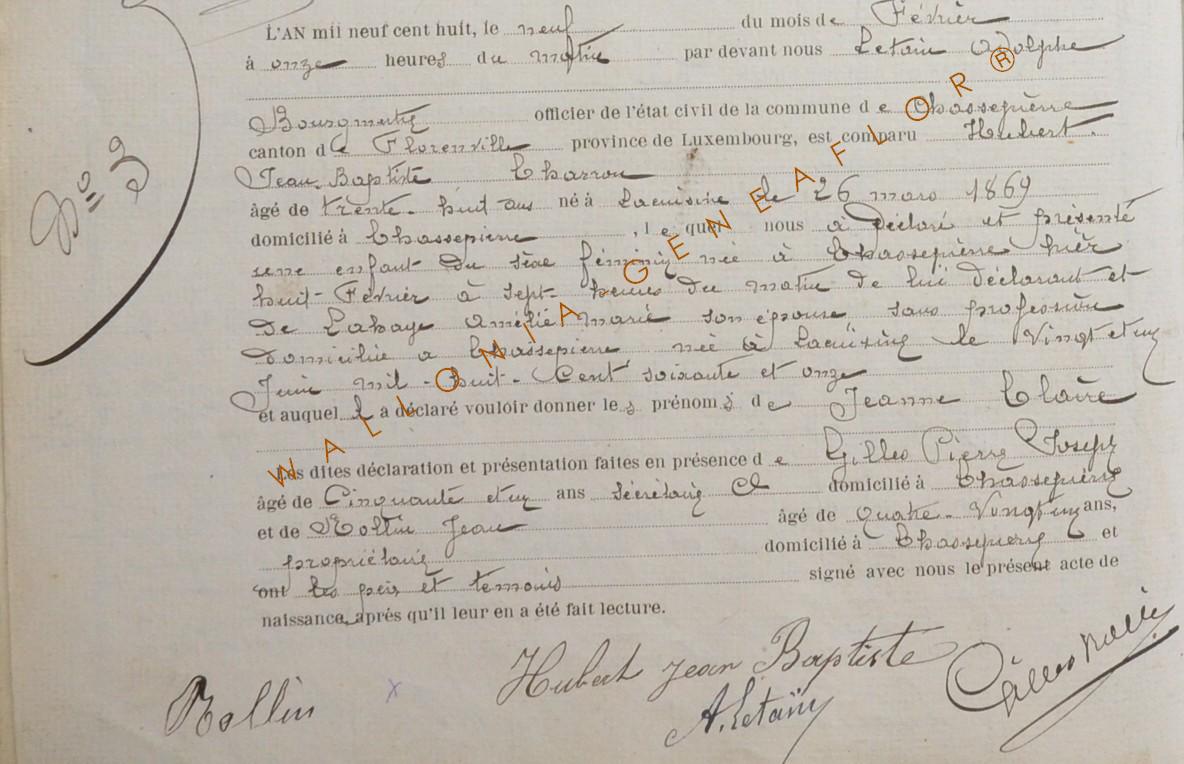 L'AN mil neuf cent huit, le neuf du mois de Février
à onze heures du matin par devant nous Letain Adolphe
Bourgmestre officier de l'état civil de la commune de Chassepierre
canton de Florenville province de Luxembourg, est comparu Hubert
Jean Baptiste Charron
âgé de trente-huit ans né à Lacuisine le 26 mars 1869
domicilié à Chassepierre, lequel nous a déclaré et présenté
une enfant du sexe féminin née à Chassepierre hièr
huit Février à sept heures du matin de lui déclarant et
de Lahaye Amélie Marie son épouse sans profession
domiciliée a Chassepierre née à Lacuisine le Vingt et un
Juin mil-huit-Cent soixante et onze
et auquel il a déclaré vouloir donner les prénoms de Jeanne Claire
Les dites déclaration et présentation faites en présence de Gilles Pierre Joseph
âgé de Cinquante et un ans secrétaire Cl domicilié à Chassepierre
et de Rollin Jean âgé de quatre-Vingt un ans,
propriétaire domicilié à Chassepierre et
ont les père et temoins signé avec nous le présent acte de
naissance, après qu'il leur en a été fait lecture.
Hubert Jean Baptiste
Rollin
A. Letain
Gilles
N= 3
WALLONIA GENEAFLOR®